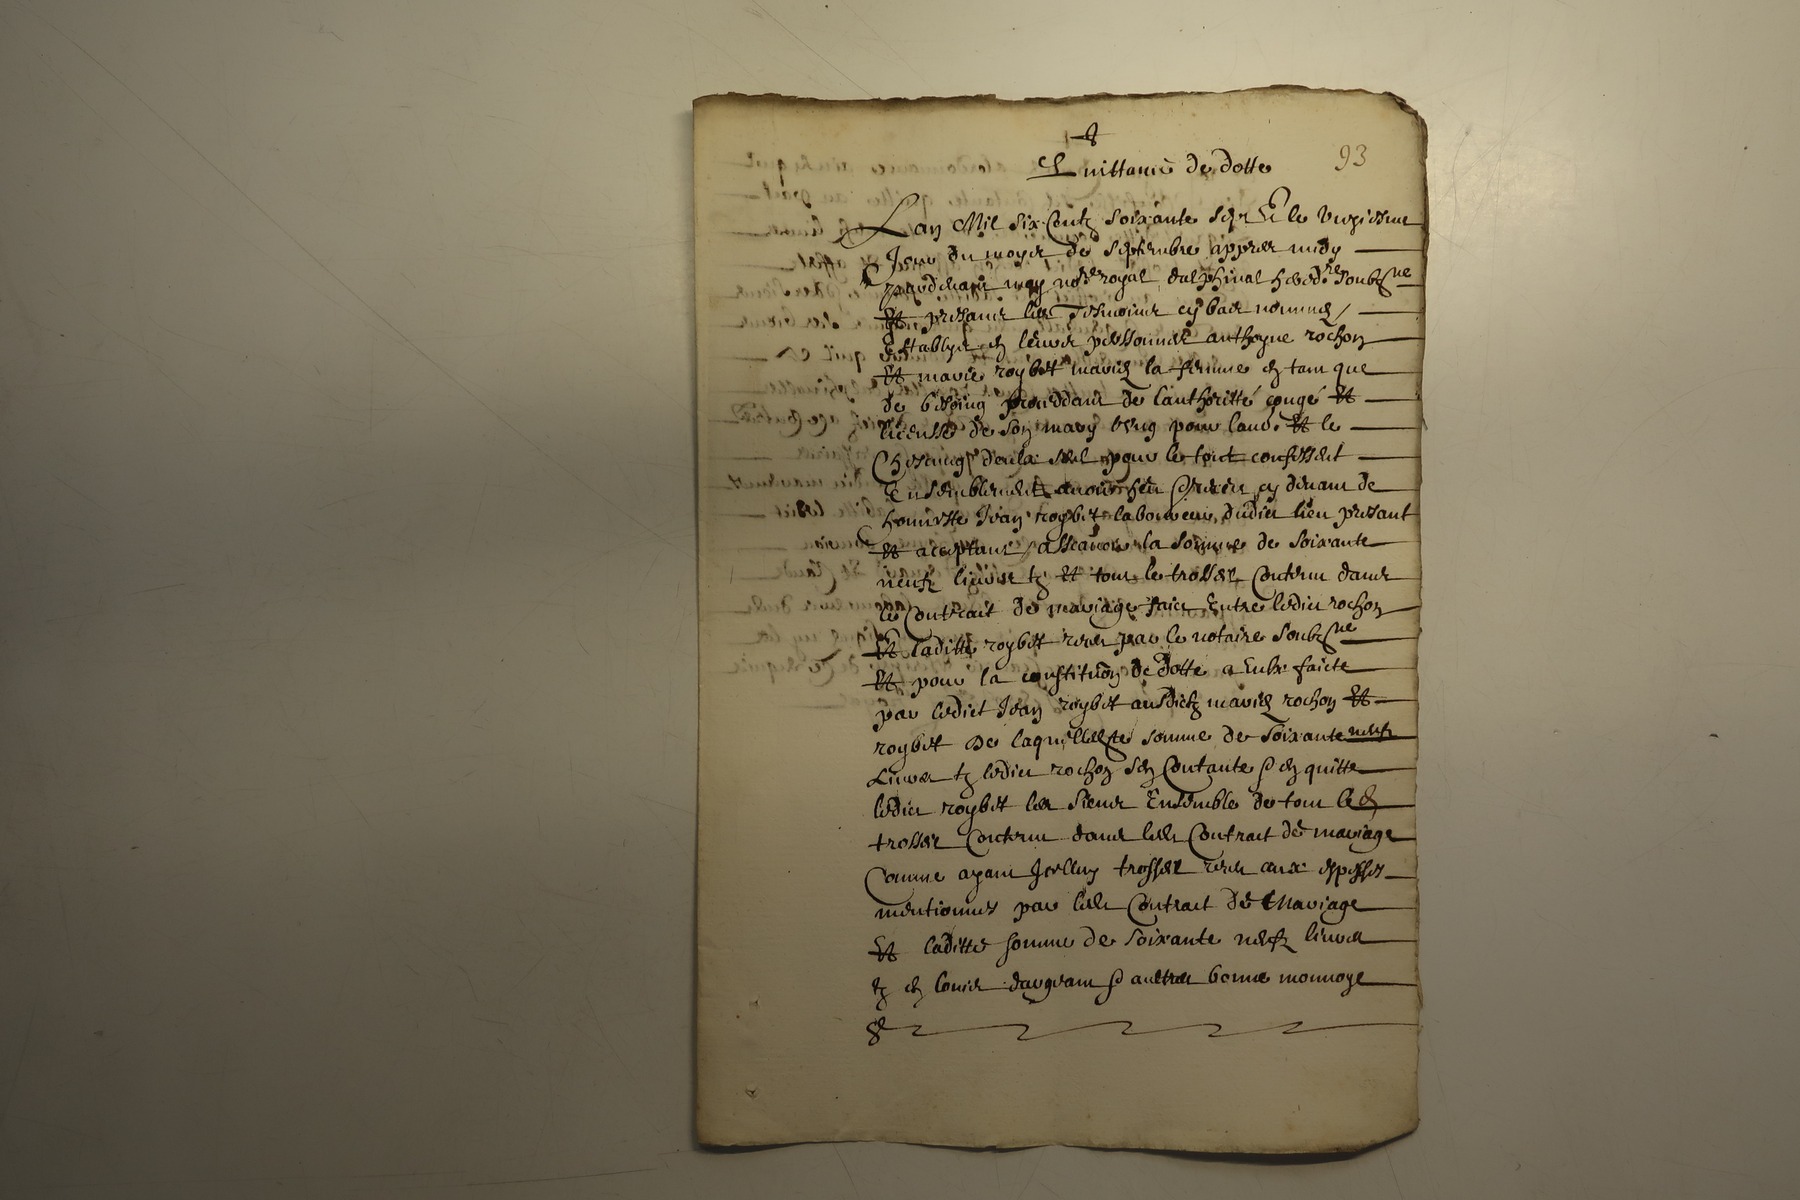 93
Quittance de dotte
Lan Mil six centz soixante sept Et le vingiesme
Jour du moys de septembre appres midy
pardevant moy no.re royal dalphinal hered.re soubz.ne
Et presans les tesmoins cy bas nommes /
Establys en leurs personnes anthoyne rochon
Et marie roybet maries la femme en tant que
de besoing procedant de lauthoritté congé Et
licensse de son mary lung pour laut. Et le
Chescung deulx seul pour le tout confessent
Ensemblement avoir heu receu cy devant de
honneste Jean roybet laboureur dudict lieu presant
Et aceptant / assavoir la somme de soixante
neufz livres tz Et tout le trossel Contenu dans
le Contrait de mariage faict Entre ledict rochon
Et laditte roybet receu par le notaire soubz.ne
Et pour la constitution de dotte a Eulx faicte
par ledict Jean roybet ausdictz maries rochon Et
roybet De laquelle somme de soixante neufz
Livres tz ledict rochon sen Contante & en quitte
ledict roybet les siens Ensemble de tout le
trossel Contenu dans led. Contrait de mariage
Comme ayant Jcelluy trossel receu aux espesses
mentionnes par led. Contrait de Mariage
Et laditte somme de soixante neufz livres
tz en louis dargeant & aultres bonne monnoye